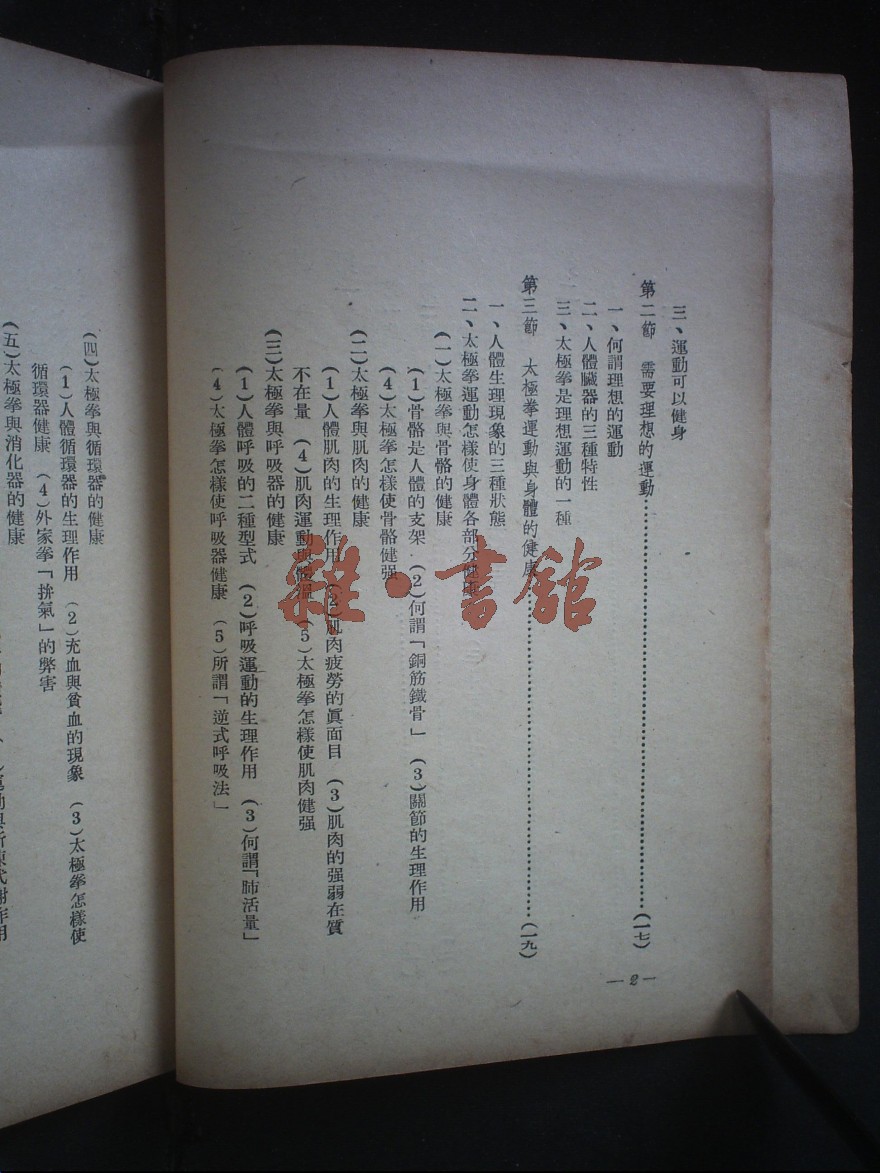 三、運動可以健身
第二節　需要理想的運動……………………………(一七)
一、何謂理想的運動
二、人體臟器的三種特性
三、太極拳是理想運動的一種
第三節　太極拳運動與身體的健康……………………………(一九)
一、人體生理現象的三種狀態
二、太極拳運動怎樣使身體各部分健康
(一)太極拳與骨骼的健康
(1)骨骼是人體的支架　(2)何謂「銅筋鐵骨」　(3)關節的生理作用
(4)太極拳怎樣使骨骼健强
(二)太極拳與肌肉的健康
(1)人體肌肉的生理作用　(2)肌肉疲勞的眞面目　(3)肌肉的强弱在質
不在量　(4)肌肉運動與體溫　(5)太極拳怎樣使肌肉健强
(三)太極拳與呼吸器的健康
(1)人體呼吸的二種型式　(2)呼吸運動的生理作用　(3)何謂「肺活量」
(4)太極拳怎樣使呼吸器健康　(5)所謂「逆式呼吸法」
—2—
(四)太極拳與循環器的健康
(1)人體循環器的生理作用　(2)充血與貧血的現象　(3)太極拳怎樣使
循環器健康　(4)外家拳「拚氣」的弊害
(五)太極拳與消化器的健康
雜·書館